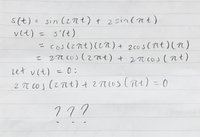 s(t) = sin(2πt) + 2sin(πt)
v(t) = s'(t)
= cos(2πt)(2π) + 2cos(πt)(π)
= 2πcos(2πt) + 2πcos(πt)
let v(t) = 0:
2πcos(2πt) + 2πcos(πt) = 0
???